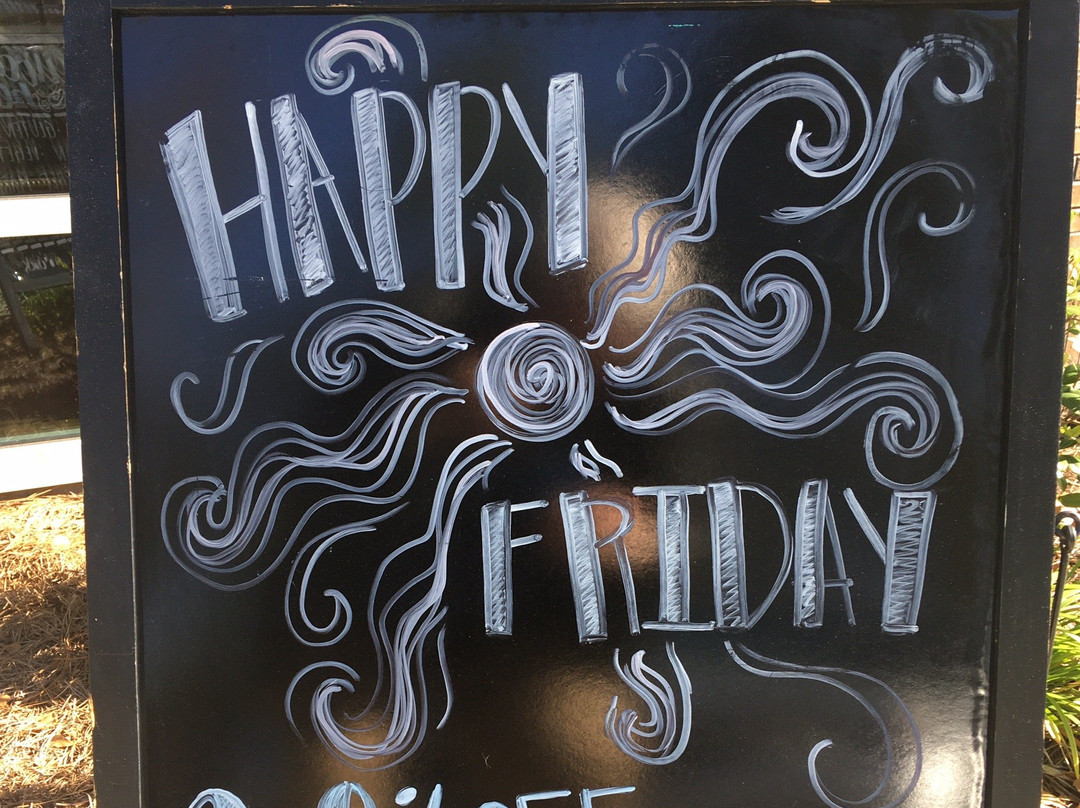 HAPPY
FRIDAY